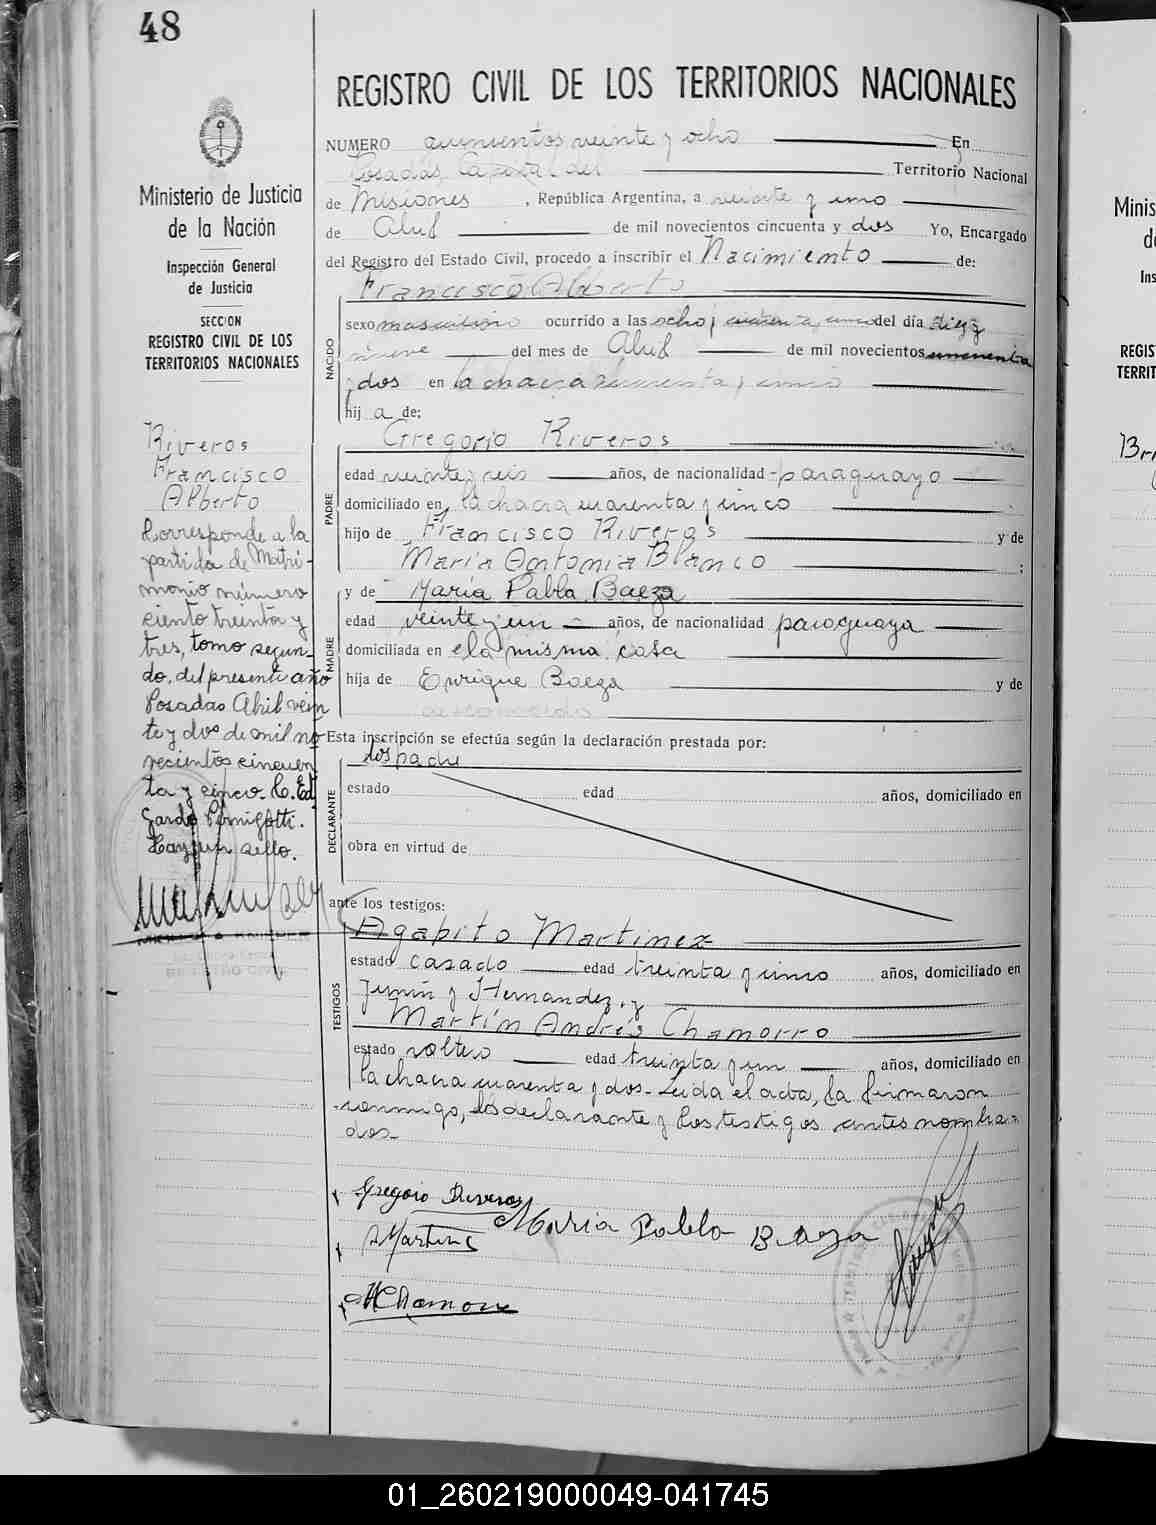 48
REGISTRO CIVIL DE LOS TERRITORIOS NACIONALES
Ministerio de Justicia
de la Nación
Inspección General
de Justicia
SECCION
REGISTRO CIVIL DE LOS
TERRITORIOS NACIONALES
Riveros
Francisco
Alberto
Corresponde a la
partida de Matri-
monio número
ciento treinta y
tres, tomo segun-
do, del presente año
Posadas Abril vein
te y dos de mil no-
vecientos cincuen
ta y cinco. C. Ed
gardo
Hay un sello.
REGISTRO CIVIL
NUMERO quinientos veinte y ocho En
Posadas, Capital del Territorio Nacional
de Misiones , República Argentina, a veinte y uno
de Abril de mil novecientos cincuenta y dos Yo, Encargado
del Registro del Estado Civil, procedo a inscribir el Nacimiento de:
Francisco Alberto
NACIDO
sexo masculino ocurrido a las ocho y cuarenta y cinco del día diez y
nueve del mes de Abril de mil novecientos cincuenta
y dos en la chacra cuarenta y cinco
hij a de:
Gregorio Riveros
PADRE
edad veinte y seis años, de nacionalidad paraguayo
domiciliado en la chacra cuarenta y cinco
hijo de Francisco Riveros y de
María Antonia Blanco ;
y de María Pabla Baeza
MADRE
edad veinte y un años, de nacionalidad paraguaya
domiciliada en la misma casa
hija de Enrique Baeza y de
desconocido
Esta inscripción se efectúa según la declaración prestada por:
los padre
DECLARANTE
estado edad años, domiciliado en
obra en virtud de
ante los testigos:
Agapito Martinez
TESTIGOS
estado casado edad treinta y cinco años, domiciliado en
Junín y Hernandez, y
Martín Andrés Chamorro
estado soltero edad treinta y un años, domiciliado en
la chacra cuarenta y dos - Leida el acta, la firmaron
conmigo, los declarante y los testigos antes nombra-
dos-
Gregorio Riveros
María Pabla Baeza
AMartinez
MChamorro
Minis
d
Ins
REGIS
TERRIT
01_260219000049-041745